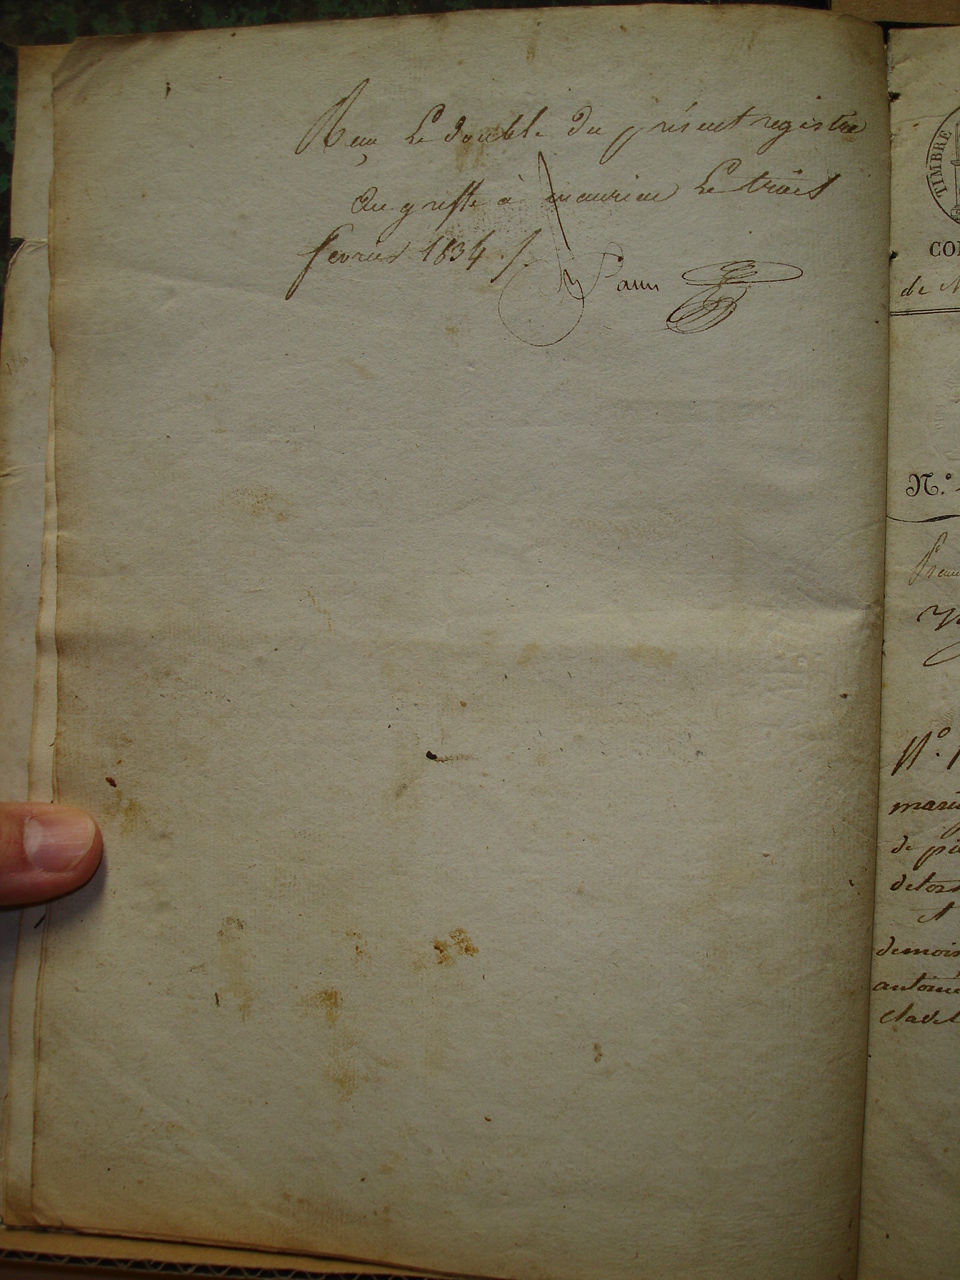 Reçu Le double du présent registre
Au greffe à mauriac Le trois
fevrier 1834 /.
TIMBRE
CO
de
N.º
N.º 1
mari
de pi
detors
demois
antoine
clavel